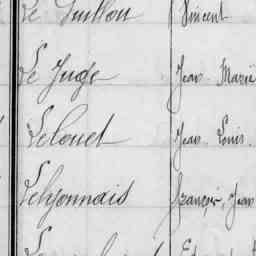 Le Guillou Vincent
Le Juge Jean Marie
Lelouet Jean Louis
Lelyonnais François, Jean